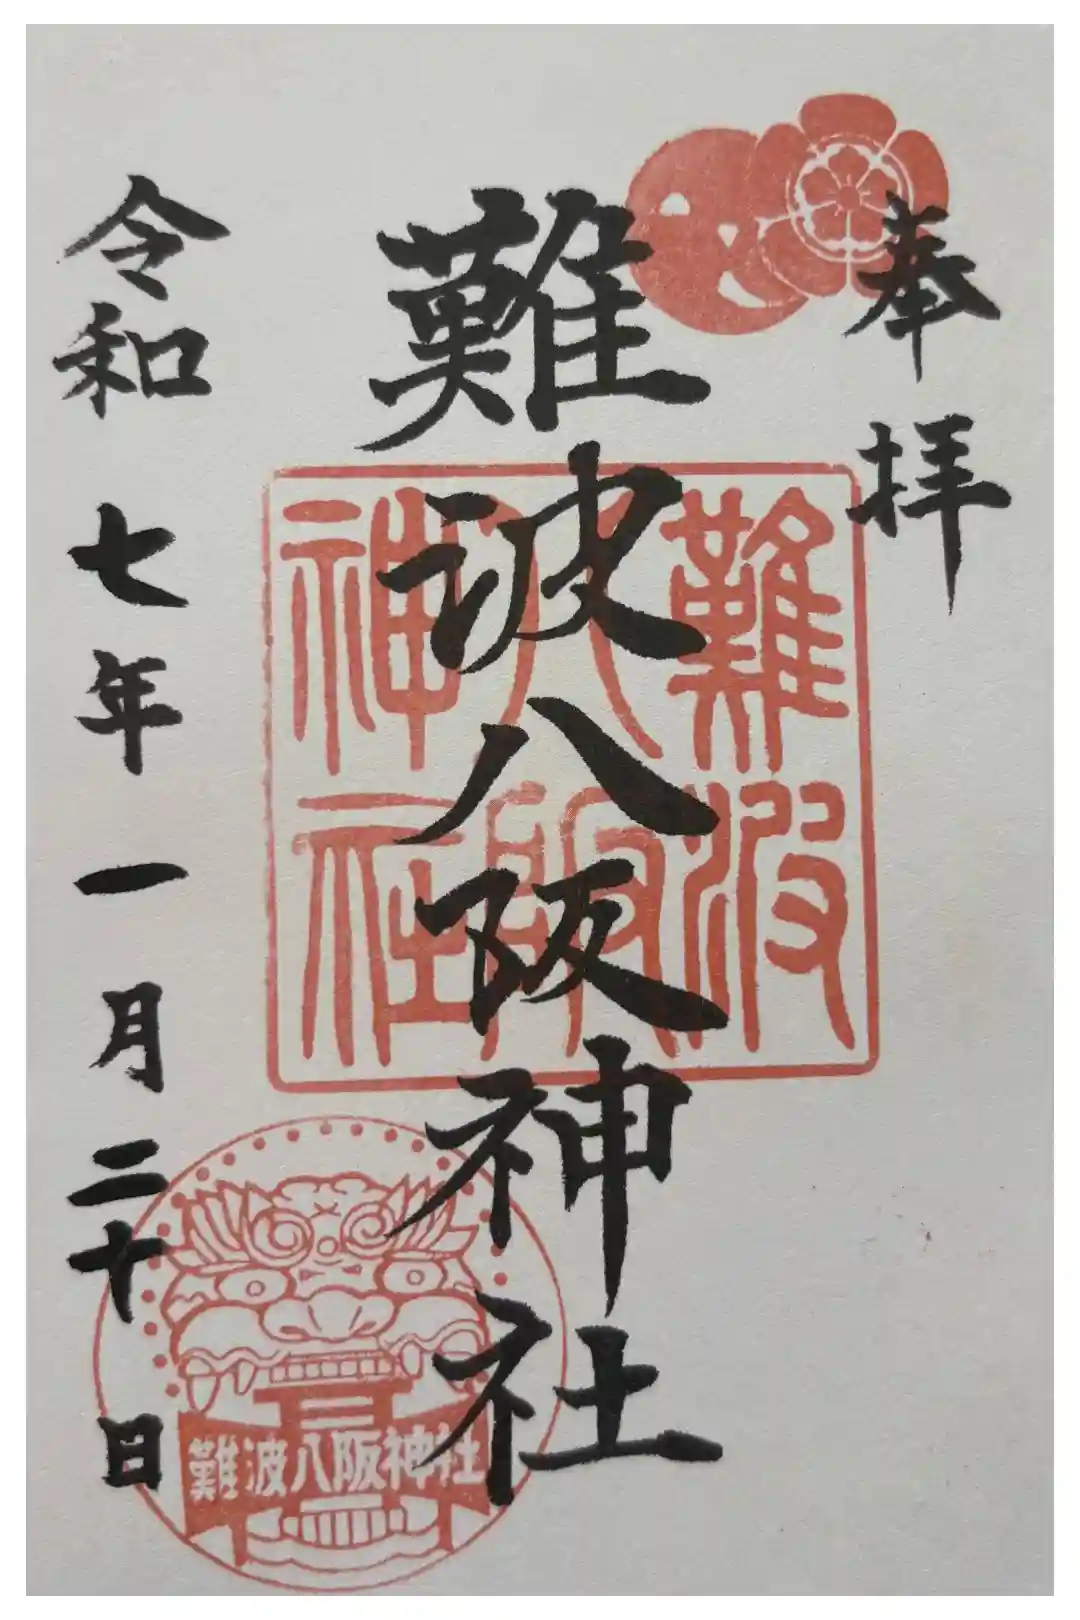 奉拝
難波八阪神社
令和七年一月二十日
難波
八阪
神社
難波八阪神社